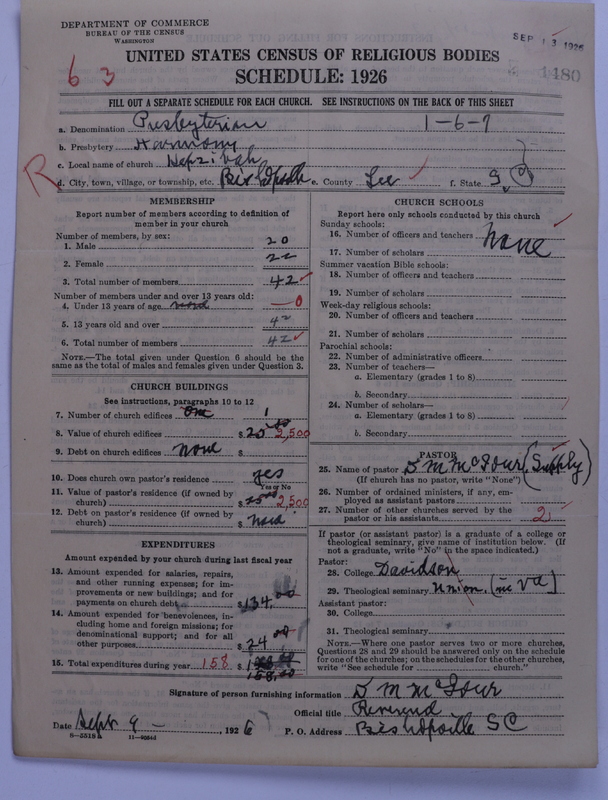 DEPARTMENT OF COMMERCE
BUREAU OF THE CENSUS
WASHINGTON
SEP 13 1926
UNITED STATES CENSUS OF RELIGIOUS BODIES
63
SCHEDULE: 1926
1480
FILL OUT A SEPARATE SCHEDULE FOR EACH CHURCH. SEE INSTRUCTIONS ON THE BACK OF THIS SHEET
a. Denomination Presbyterian 1-6-7
b. Presbytery Harmony
c. Local name of church Hepzibah
R
d. City, town, village, or township, etc. Bishopville e. County Lee f. State S.C
MEMBERSHIP
Report number of members according to definition of
member in your church
Number of members, by sex:
1. Male 20
2. Female 22
3. Total number of members 42
Number of members under and over 13 years old:
4. Under 13 years of age none 0
5. 13 years old and over 42
6. Total number of members 42
NOTE.—The total given under Question 6 should be the
same as the total of males and females given under Question 3.
CHURCH BUILDINGS
See instructions, paragraphs 10 to 12
7. Number of church edifices one 1
8. Value of church edifices $ 2500 2,500
9. Debt on church edifices none $
10. Does church own pastor's residence yes
Yes or No
11. Value of pastor's residence (if owned by
church) $ 2500 2,500
12. Debt on pastor's residence (if owned by
church) $ none
EXPENDITURES
Amount expended by your church during last fiscal year
13. Amount expended for salaries, repairs,
and other running expenses; for im-
provements or new buildings; and for
payments on church debt $ 134.00
14. Amount expended for benevolences, in-
cluding home and foreign missions; for
denominational support; and for all
other purposes $ 24.00
15. Total expenditures during year 158 $
158.00
CHURCH SCHOOLS
Report here only schools conducted by this church
Sunday schools:
16. Number of officers and teachers None
17. Number of scholars
Summer vacation Bible schools:
18. Number of officers and teachers
19. Number of scholars
Week-day religious schools:
20. Number of officers and teachers
21. Number of scholars
Parochial schools:
22. Number of administrative officers
23. Number of teachers—
a. Elementary (grades 1 to 8)
b. Secondary
24. Number of scholars—
a. Elementary (grades 1 to 8)
b. Secondary
PASTOR
25. Name of pastor (Supply)
(If church has no pastor, write "None")
26. Number of ordained ministers, if any, em-
ployed as assistant pastors
27. Number of other churches served by the
pastor or his assistants 2
If pastor (or assistant pastor) is a graduate of a college or
theological seminary, give name of institution below. (If
not a graduate, write "No" in the space indicated.)
Pastor:
28. College Davidson
29. Theological seminary Union. (in Va)
Assistant pastor:
30. College
31. Theological seminary
NOTE.—Where one pastor serves two or more churches,
Questions 28 and 29 should be answered only on the schedule
for one of the churches; on the schedules for the other churches,
write "See schedule for ---- church."
Signature of person furnishing information
Official title Reverend
Date Sept 9 - , 1926 P. O. Address Bishopville SC
8-5518 11-9054d